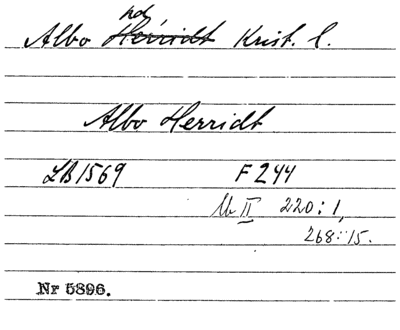 hd
Albo Herridt Krist. l.
Albo Herridt
LB 1569 F 244
Ub II 220:1,
268:15.
Nr 5896.